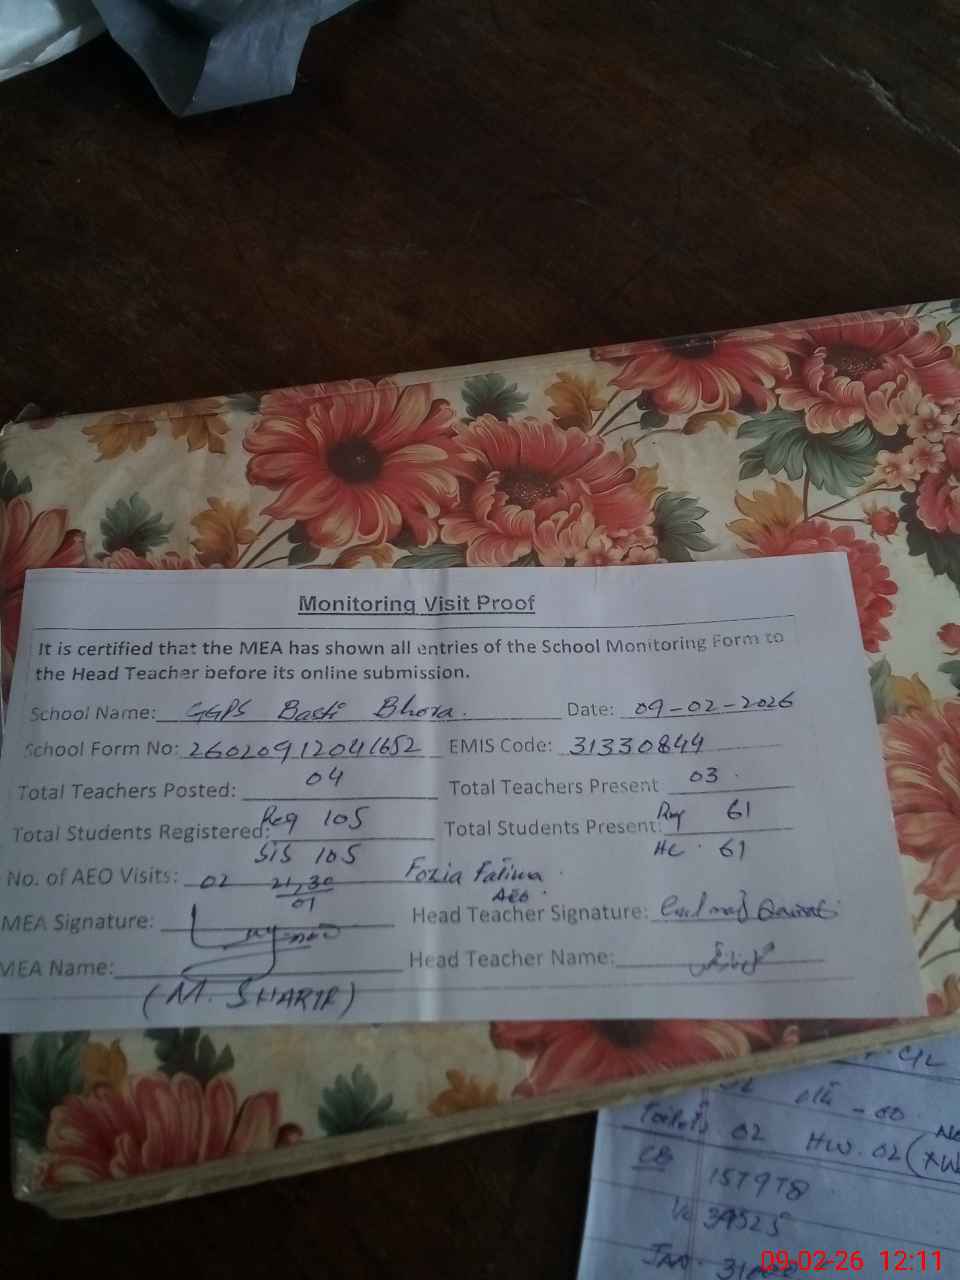 Monitoring Visit Proof
It is certified that the MEA has shown all entries of the School Monitoring Form to
the Head Teacher before its online submission.
School Name: GGPS Basti Bhora. Date: 09-02-2026
School Form No: 26020912041652 EMIS Code: 31330844
Total Teachers Posted: 04 Total Teachers Present 03
Total Students Registered: Reg 105 Total Students Present: Reg 61
SIS 105 HC. 61
No. of AEO Visits: 02 21,30 Fozia Fatima
01 AEO
MEA Signature: Head Teacher Signature:
MEA Name: Head Teacher Name:
(M. SHARIF)
- 00
Toilets 02 HW. 02
CB 157978
39525
09-02-26 12:11